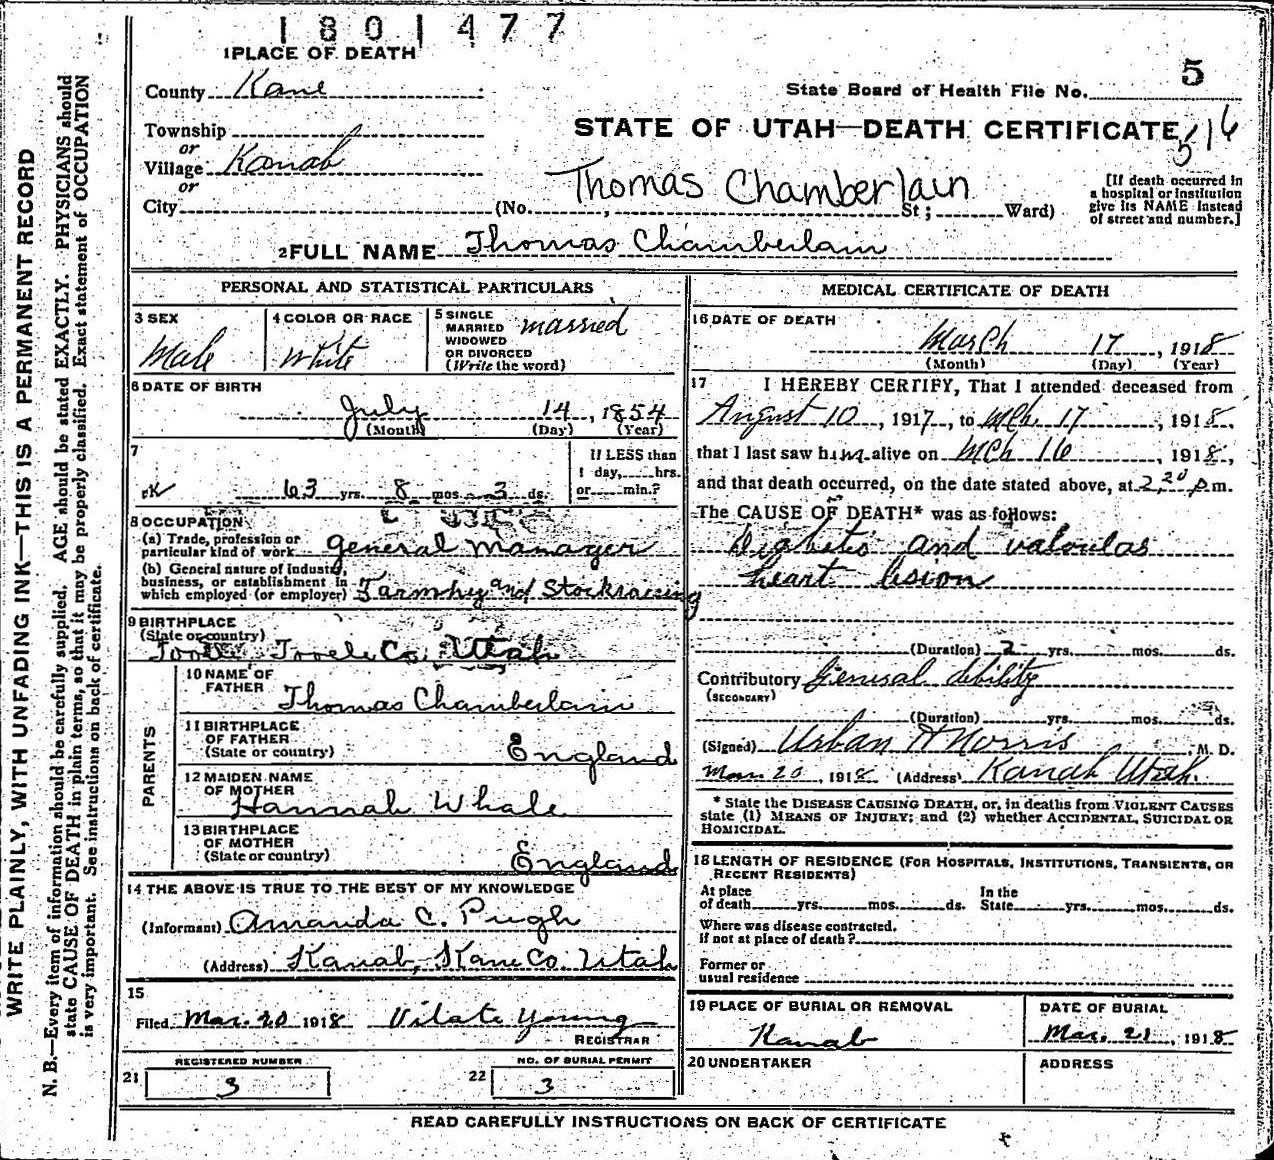 1801477
1 PLACE OF DEATH
5
County Kane
State Board of Health File No.
Township
STATE OF UTAH—DEATH CERTIFICATE
516
or
Village Kanab
or
Thomas Chamberlain
[If death occurred in
a hospital or institution
give its NAME instead
of street and number.]
City (No. , St; Ward)
2 FULL NAME Thomas Chamberlain
PERSONAL AND STATISTICAL PARTICULARS
3 SEX
Male
4 COLOR OR RACE
White
5 SINGLE
MARRIED
WIDOWED
OR DIVORCED
(Write the word)
married
6 DATE OF BIRTH
July 14, 1854
(Month) (Day) (Year)
7
63 yrs. 8 mos. 3 ds.
If LESS than
1 day, hrs.
or min.?
8 OCCUPATION
(a) Trade, profession or
particular kind of work general manager
(b) General nature of industry,
business, or establishment in
which employed (or employer) Farming and Stockraising
9 BIRTHPLACE
(State or country)
Tooele Tooele Co. Utah
PARENTS
10 NAME OF
FATHER
Thomas Chamberlain
11 BIRTHPLACE
OF FATHER
(State or country)
England
12 MAIDEN NAME
OF MOTHER
Hannah Whale
13 BIRTHPLACE
OF MOTHER
(State or country)
England
14 THE ABOVE IS TRUE TO THE BEST OF MY KNOWLEDGE
(Informant) Amanda C. Pugh
(Address) Kanab, Kane Co. Utah
15
Filed Mar. 20 1918 Vilate Young
REGISTRAR
REGISTERED NUMBER
21 3
NO. OF BURIAL PERMIT
22 3
MEDICAL CERTIFICATE OF DEATH
16 DATE OF DEATH
March 17, 1918
(Month) (Day) (Year)
17 I HEREBY CERTIFY, That I attended deceased from
August 10, 1917, to Mch. 17, 1918,
that I last saw him alive on Mch 16, 1918,
and that death occurred, on the date stated above, at 2,20 p.m.
The CAUSE OF DEATH* was as follows:
Diabetis and valvulas
heart lesion
(Duration) 2 yrs. mos. ds.
Contributory General debility
(SECONDARY)
(Duration) yrs. mos. ds.
(Signed) Urban Morris M. D.
Mar. 20, 1918 (Address) Kanab Utah.
* State the DISEASE CAUSING DEATH, or, in deaths from VIOLENT CAUSES
state (1) MEANS OF INJURY; and (2) whether ACCIDENTAL, SUICIDAL OR
HOMICIDAL.
18 LENGTH OF RESIDENCE (FOR HOSPITALS, INSTITUTIONS, TRANSIENTS, OR
RECENT RESIDENTS)
At place
of death yrs. mos. ds.
In the
State yrs. mos. ds.
Where was disease contracted,
if not at place of death?
Former or
usual residence
19 PLACE OF BURIAL OR REMOVAL
Kanab
DATE OF BURIAL
Mar. 21, 1918
20 UNDERTAKER
ADDRESS
READ CAREFULLY INSTRUCTIONS ON BACK OF CERTIFICATE
WRITE PLAINLY, WITH UNFADING INK—THIS IS A PERMANENT RECORD
N. B.—Every item of information should be carefully supplied. AGE should be stated EXACTLY. PHYSICIANS should
state CAUSE OF DEATH in plain terms, so that it may be properly classified. Exact statement of OCCUPATION
is very important. See instructions on back of certificate.